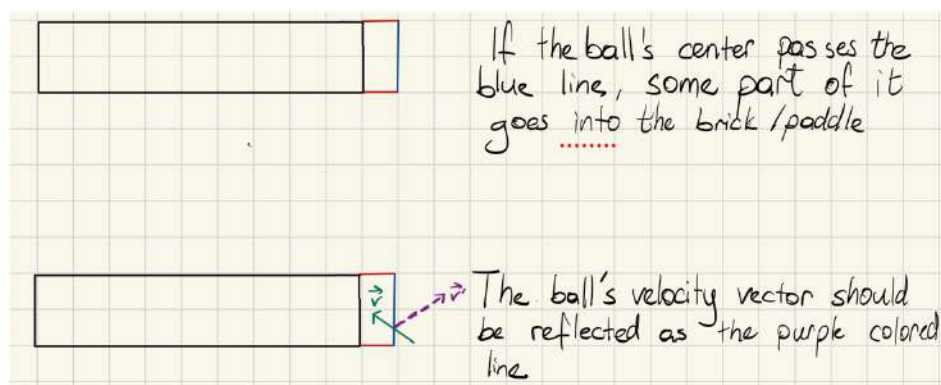 If the ball's center passes the
blue line, some part of it
goes into the brick/paddle
v
v
The ball's velocity vector should
be reflected as the purple colored
line